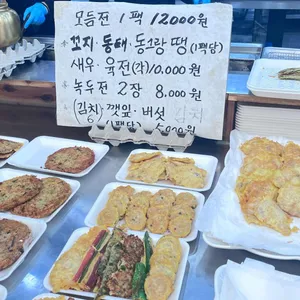 모듬전 1팩 12000원
꼬지·동태·동그랑땡(1팩당)
새우·육전(각)10,000원
녹두전 2장 8,000원
(김치 깻잎·버섯 김치
6 (1팩당) 5,000원